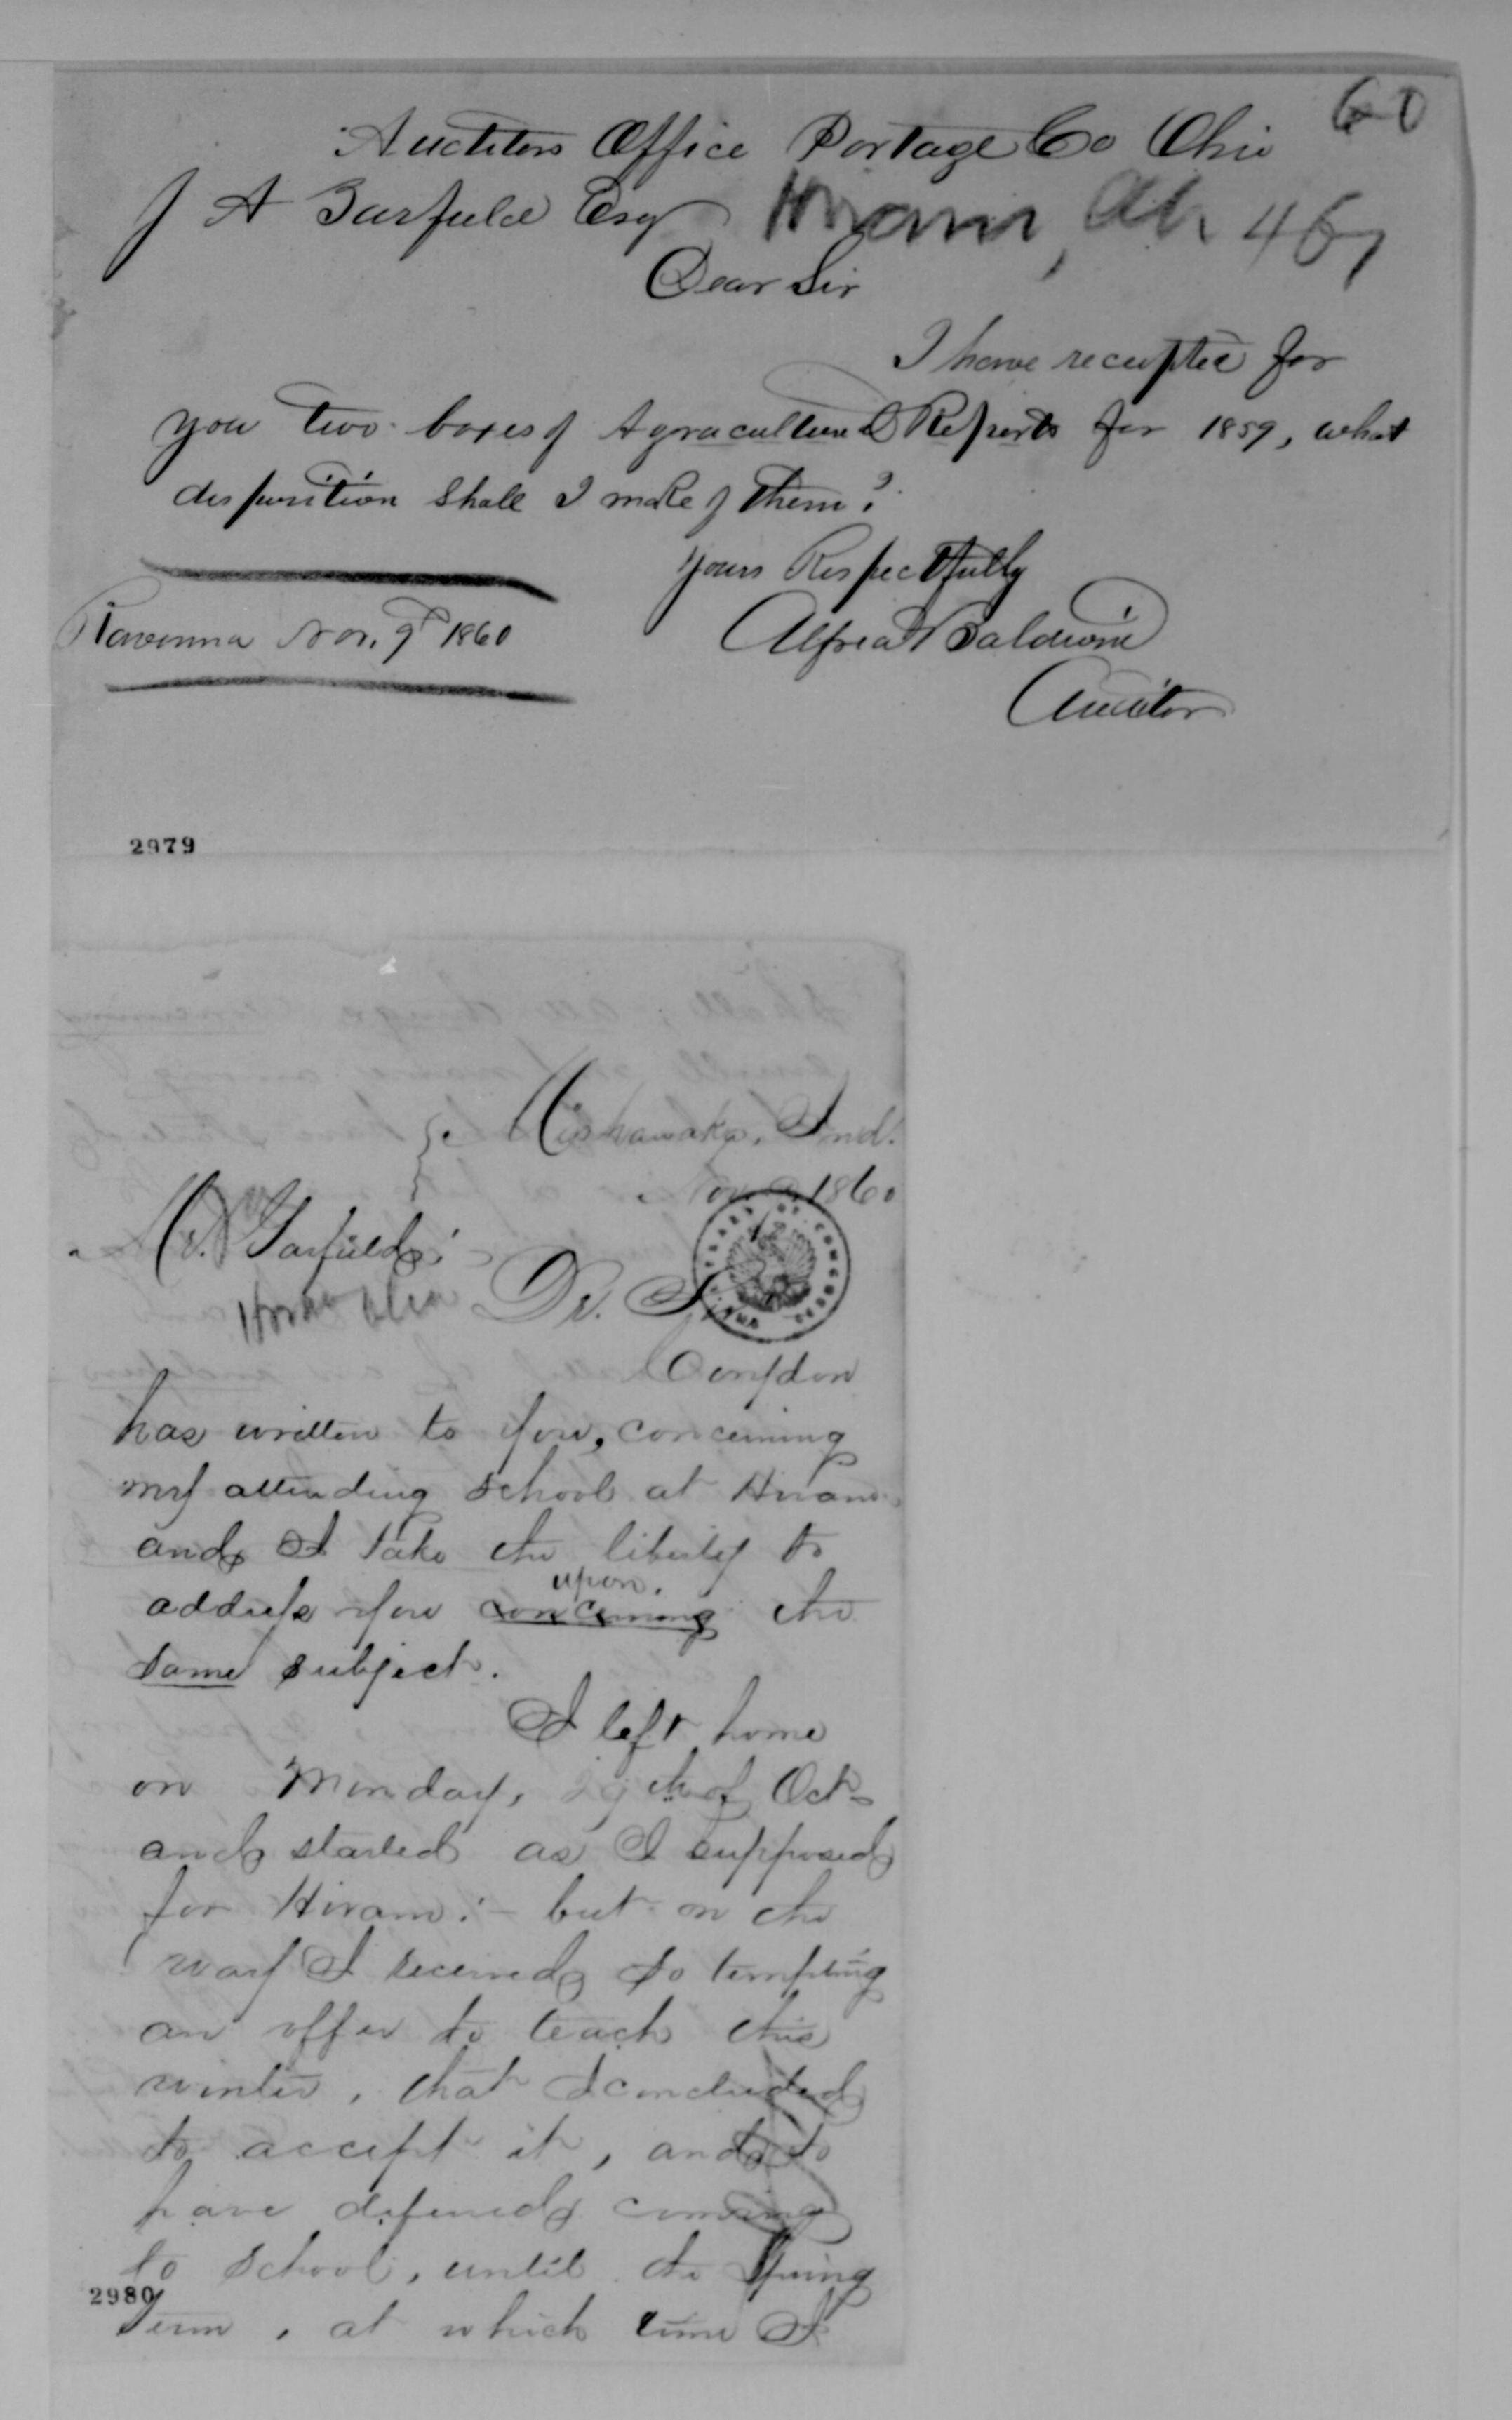 60
Auditors Office Portage Co Ohio
J A Garfield Esq Hiram, Oh 467
Dear Sir
I have receipted for
you two boxes of Agraculturul Reports for 1859, what
disposition shall I make of them?
Yours Respectfully
Ravenna Nov. 9th 1860
Alfred Baldwin
Auditor
2979
Mishawaka, Ind.
Nov. 1860
Mr. Garfield;
Hiram Ohio
Dr. Sir
Corydon
has written to you, concerning
my attending school at Hiram
and I take the liberty to
upon.
address you concerning the
same subject.
I left home
on Monday, 29th of Oct-
and started as I supposed
for Hiram:- but on the
way I received so tempting
an offer to teach this
winter, that I concluded
to accept it, and to
have deferred coming
to school, until the Spring
2980
Term, at which time I